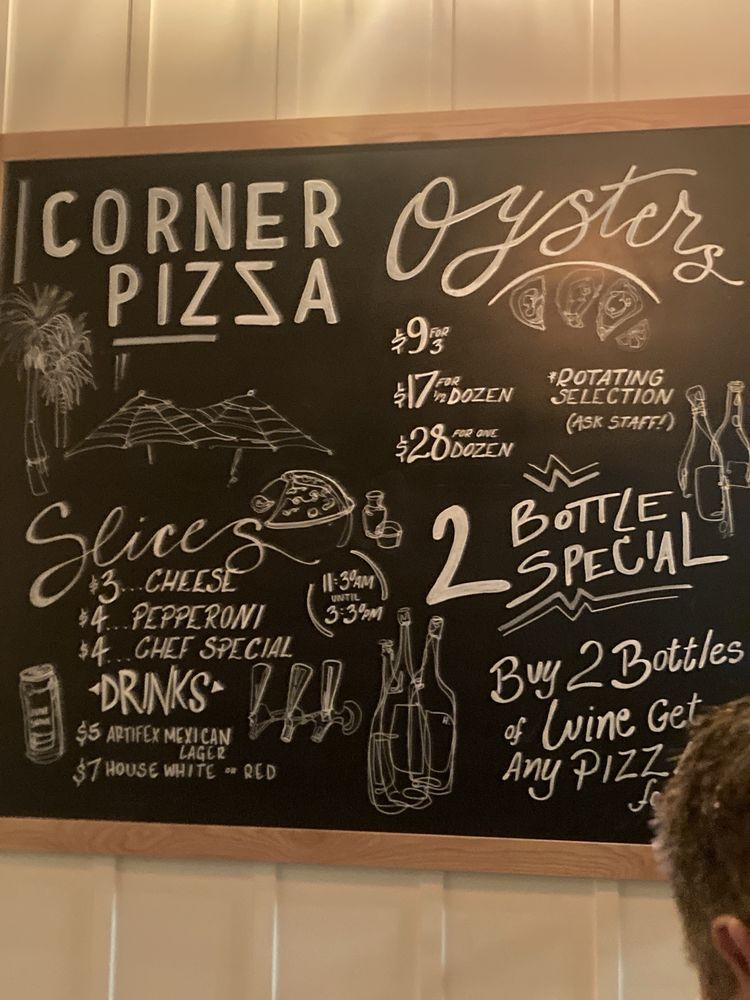 CORNER
PIZZA
Slices
$3...CHEESE
$4...PEPPERONI
$4...CHEF SPECIAL
11:30AM
UNTIL
3:30PM
DRINKS
$5 ARTIFEX MEXICAN
LAGER
$7 HOUSE WHITE OR RED
Oysters
$9 FOR 3
$17 FOR 1/2 DOZEN
$28 FOR ONE DOZEN
*ROTATING
SELECTION
(ASK STAFF!)
2 BOTTLE
SPECIAL
Buy 2 Bottles
of Wine Get
Any